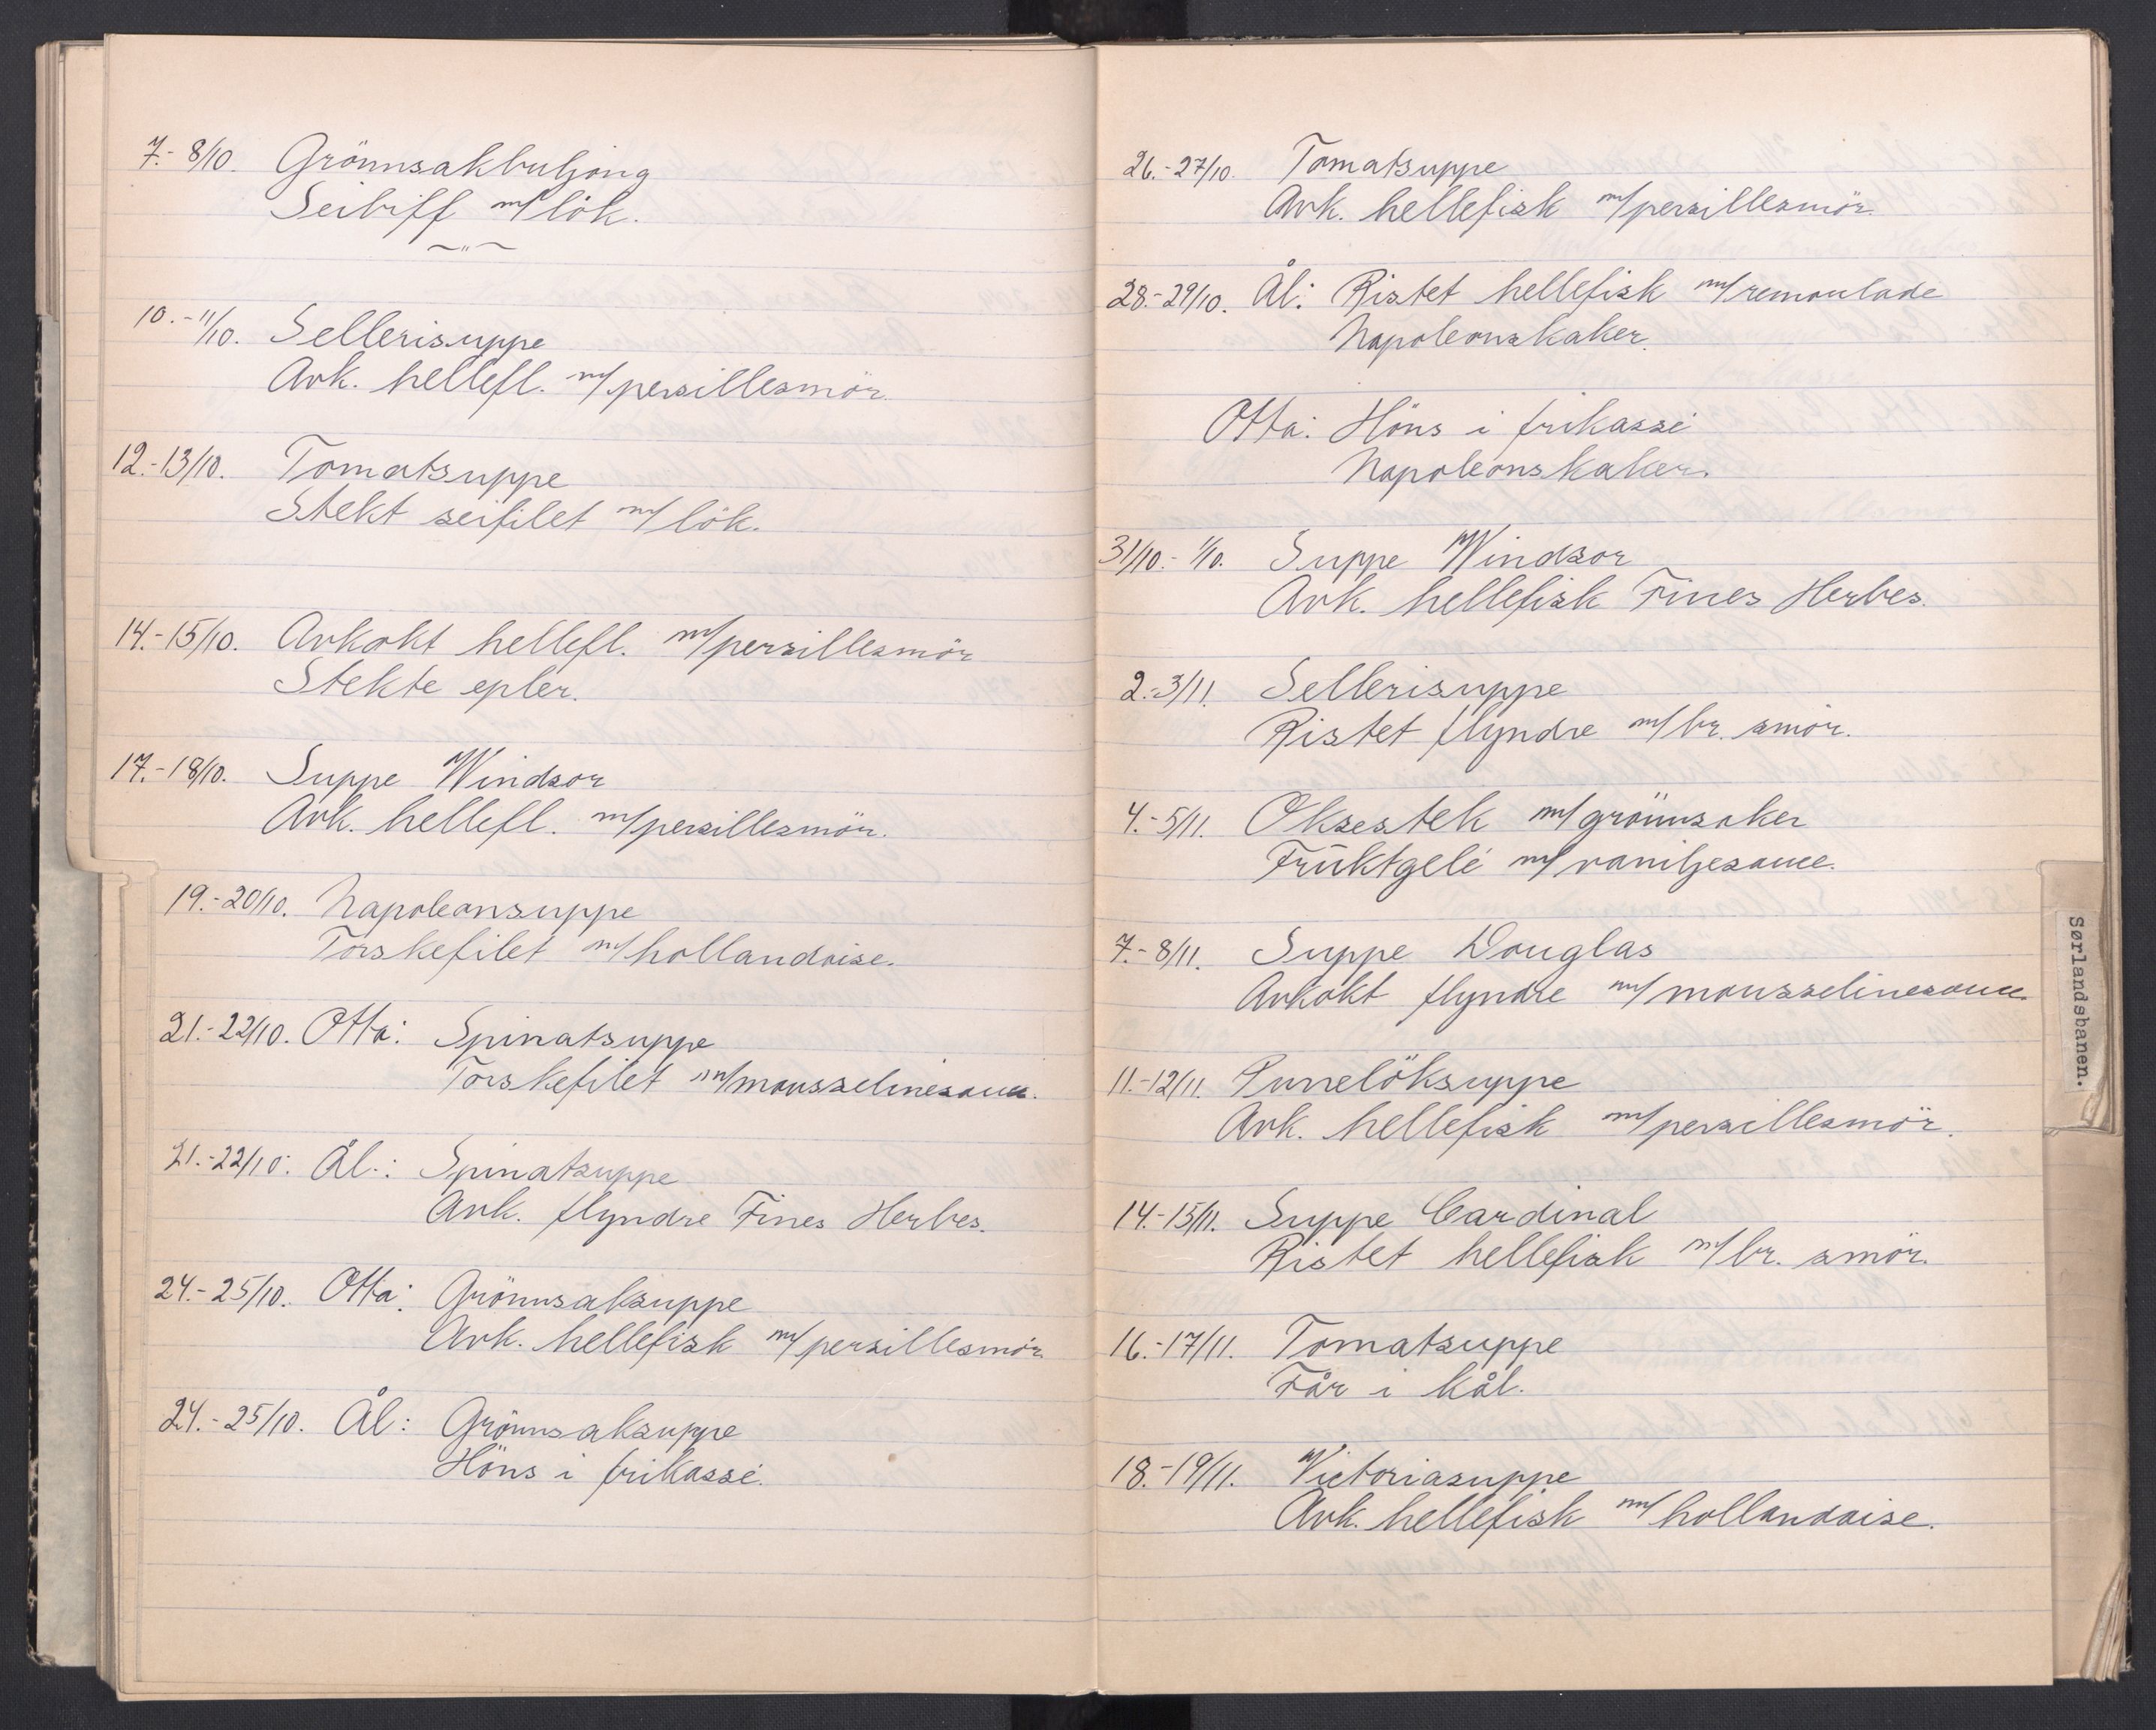 7.- 8/10. Grönnsakbuljong
Seibiff m/lök.
10.-11/10. Sellerisuppe
Avk. hellefl. m/persillesmör.
12.-13/10. Tomatsuppe
Stekt seifilet m/lök.
14.-15/10. Avkokt hellefl. m/persillesmör
Stekte epler.
17.-18/10. Suppe Windsor
Avk. hellefl. m/persillesmör.
19.-20/10. Napoleonsuppe
Torskefilet m/hollandaise.
21.-22/10. Otta: Spinatsuppe
Torskefilet m/mousselinesauce.
21.-22/10. Ål.: Spinatsuppe
Avk. flyndre Fines Herbes.
24.-25/10. Otta: Grönnsaksuppe
Avk. hellefisk m/persillesmör.
24.-25/10. Ål: Grönnsaksuppe
Höns i frikassé.
26.-27/10. Tomatsuppe
Avk. hellefisk m/persillesmör.
28.-29/10. Ål: Ristet hellefisk m/remoulade
Napoleonskaker.
Otta: Höns i frikassé
Napoleonskaker.
31/10.- 1/10. Suppe Windsor
Avk. hellefisk Fines Herbes.
2.-3/11. Sellerisuppe
Ristet flyndre m/br. smör.
4.-5/11. Oksestek m/grönnsaker
Fruktgelé m/vaniljesauce.
7.-8/11. Suppe Douglas
Avkokt flyndre m/mousselinesauce.
11.-12/11. Purrelöksuppe
Avk. hellefisk m/persillesmör.
14.-15/11. Suppe Cardinal
Ristet hellefisk m/br. smör.
16.-17/11. Tomatsuppe
Får i kål.
18.-19/11. Victoriasuppe
Avk. hellefisk m/hollandaise.
Sørlandsbanen.